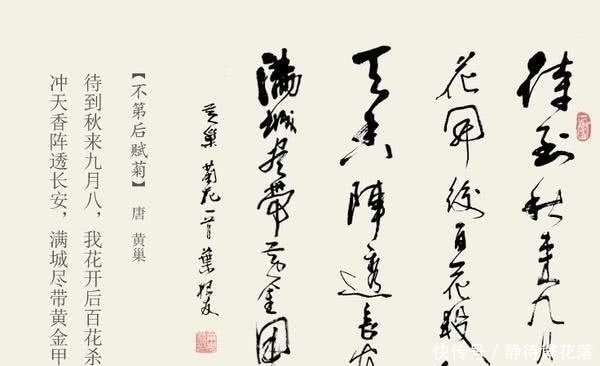 待到秋来九月
花开后百花杀
天香阵透长安
满城尽带黄金甲
黄巢 菊花一首 葉根友
【不第后赋菊】 唐 黄巢
待到秋来九月八，我花开后百花杀
冲天香阵透长安，满城尽带黄金甲
快传号 / 静待繁花落